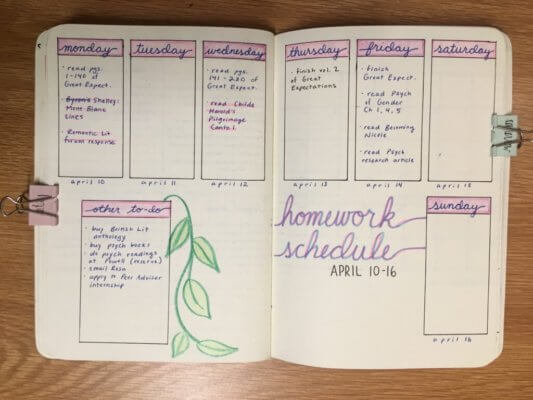 monday
• read pgs.
1-140 of
Great Expect.
• Byron's Shelley:
Mont Blanc
Lines
• Romantic Lit
forum response
april 10
tuesday
april 11
wednesday
• read pgs.
141-280 of
Great Expect.
• read Childe
Harold's
Pilgrimage
Canto 1.
april 12
thursday
• finish vol. 2
of Great
Expectations
april 13
friday
• finish
Great Expect.
• read Psych
of Gender
Ch 1, 4, 5
• read Becoming
Nicole
• read Psych
research article
april 14
saturday
april 15
other to-do
• buy British Lit
anthology
• buy psych books
• do psych readings
at Powell (reserve)
• email Rosa
• apply to Peer Advisor
internship
homework
schedule
APRIL 10-16
sunday
april 16